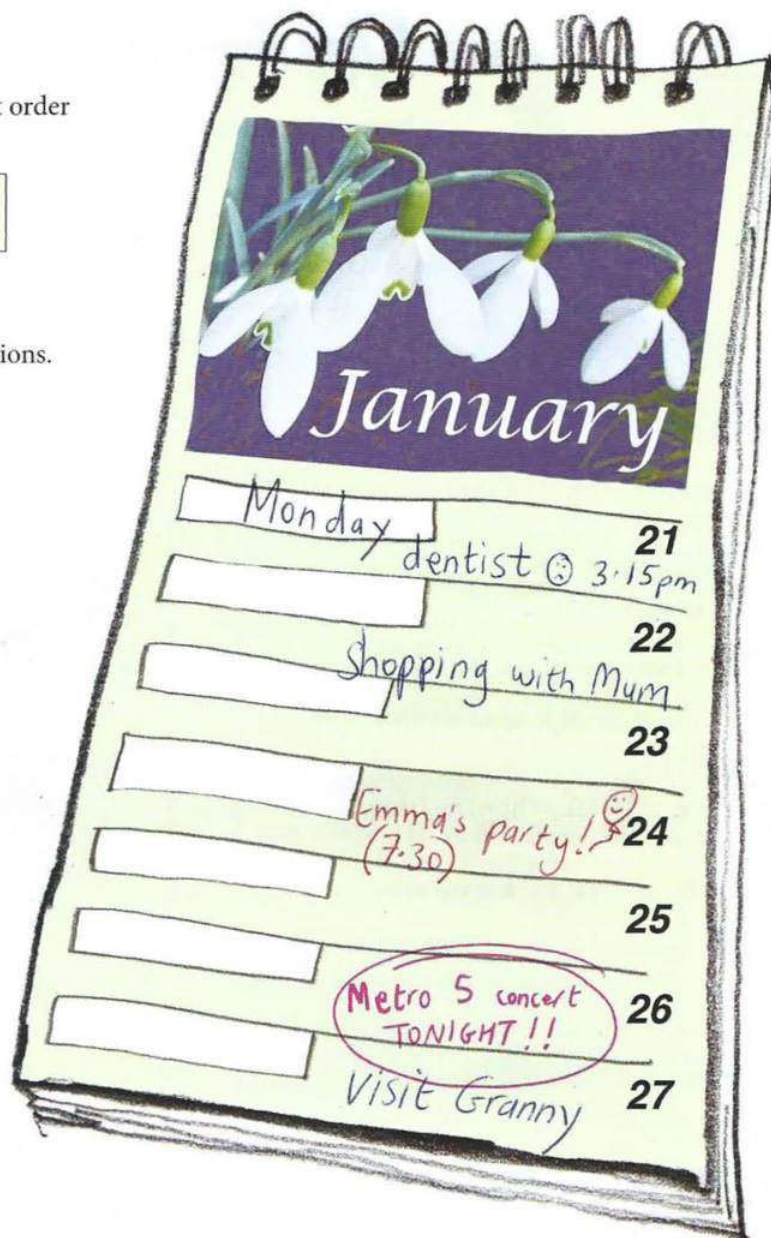 t order
ions.
January
Monday
21
dentist 3.15pm
22
Shopping with Mum
23
Emma's party! 24
(7.30)
25
Metro 5 concert 26
TONIGHT!!
Visit Granny 27